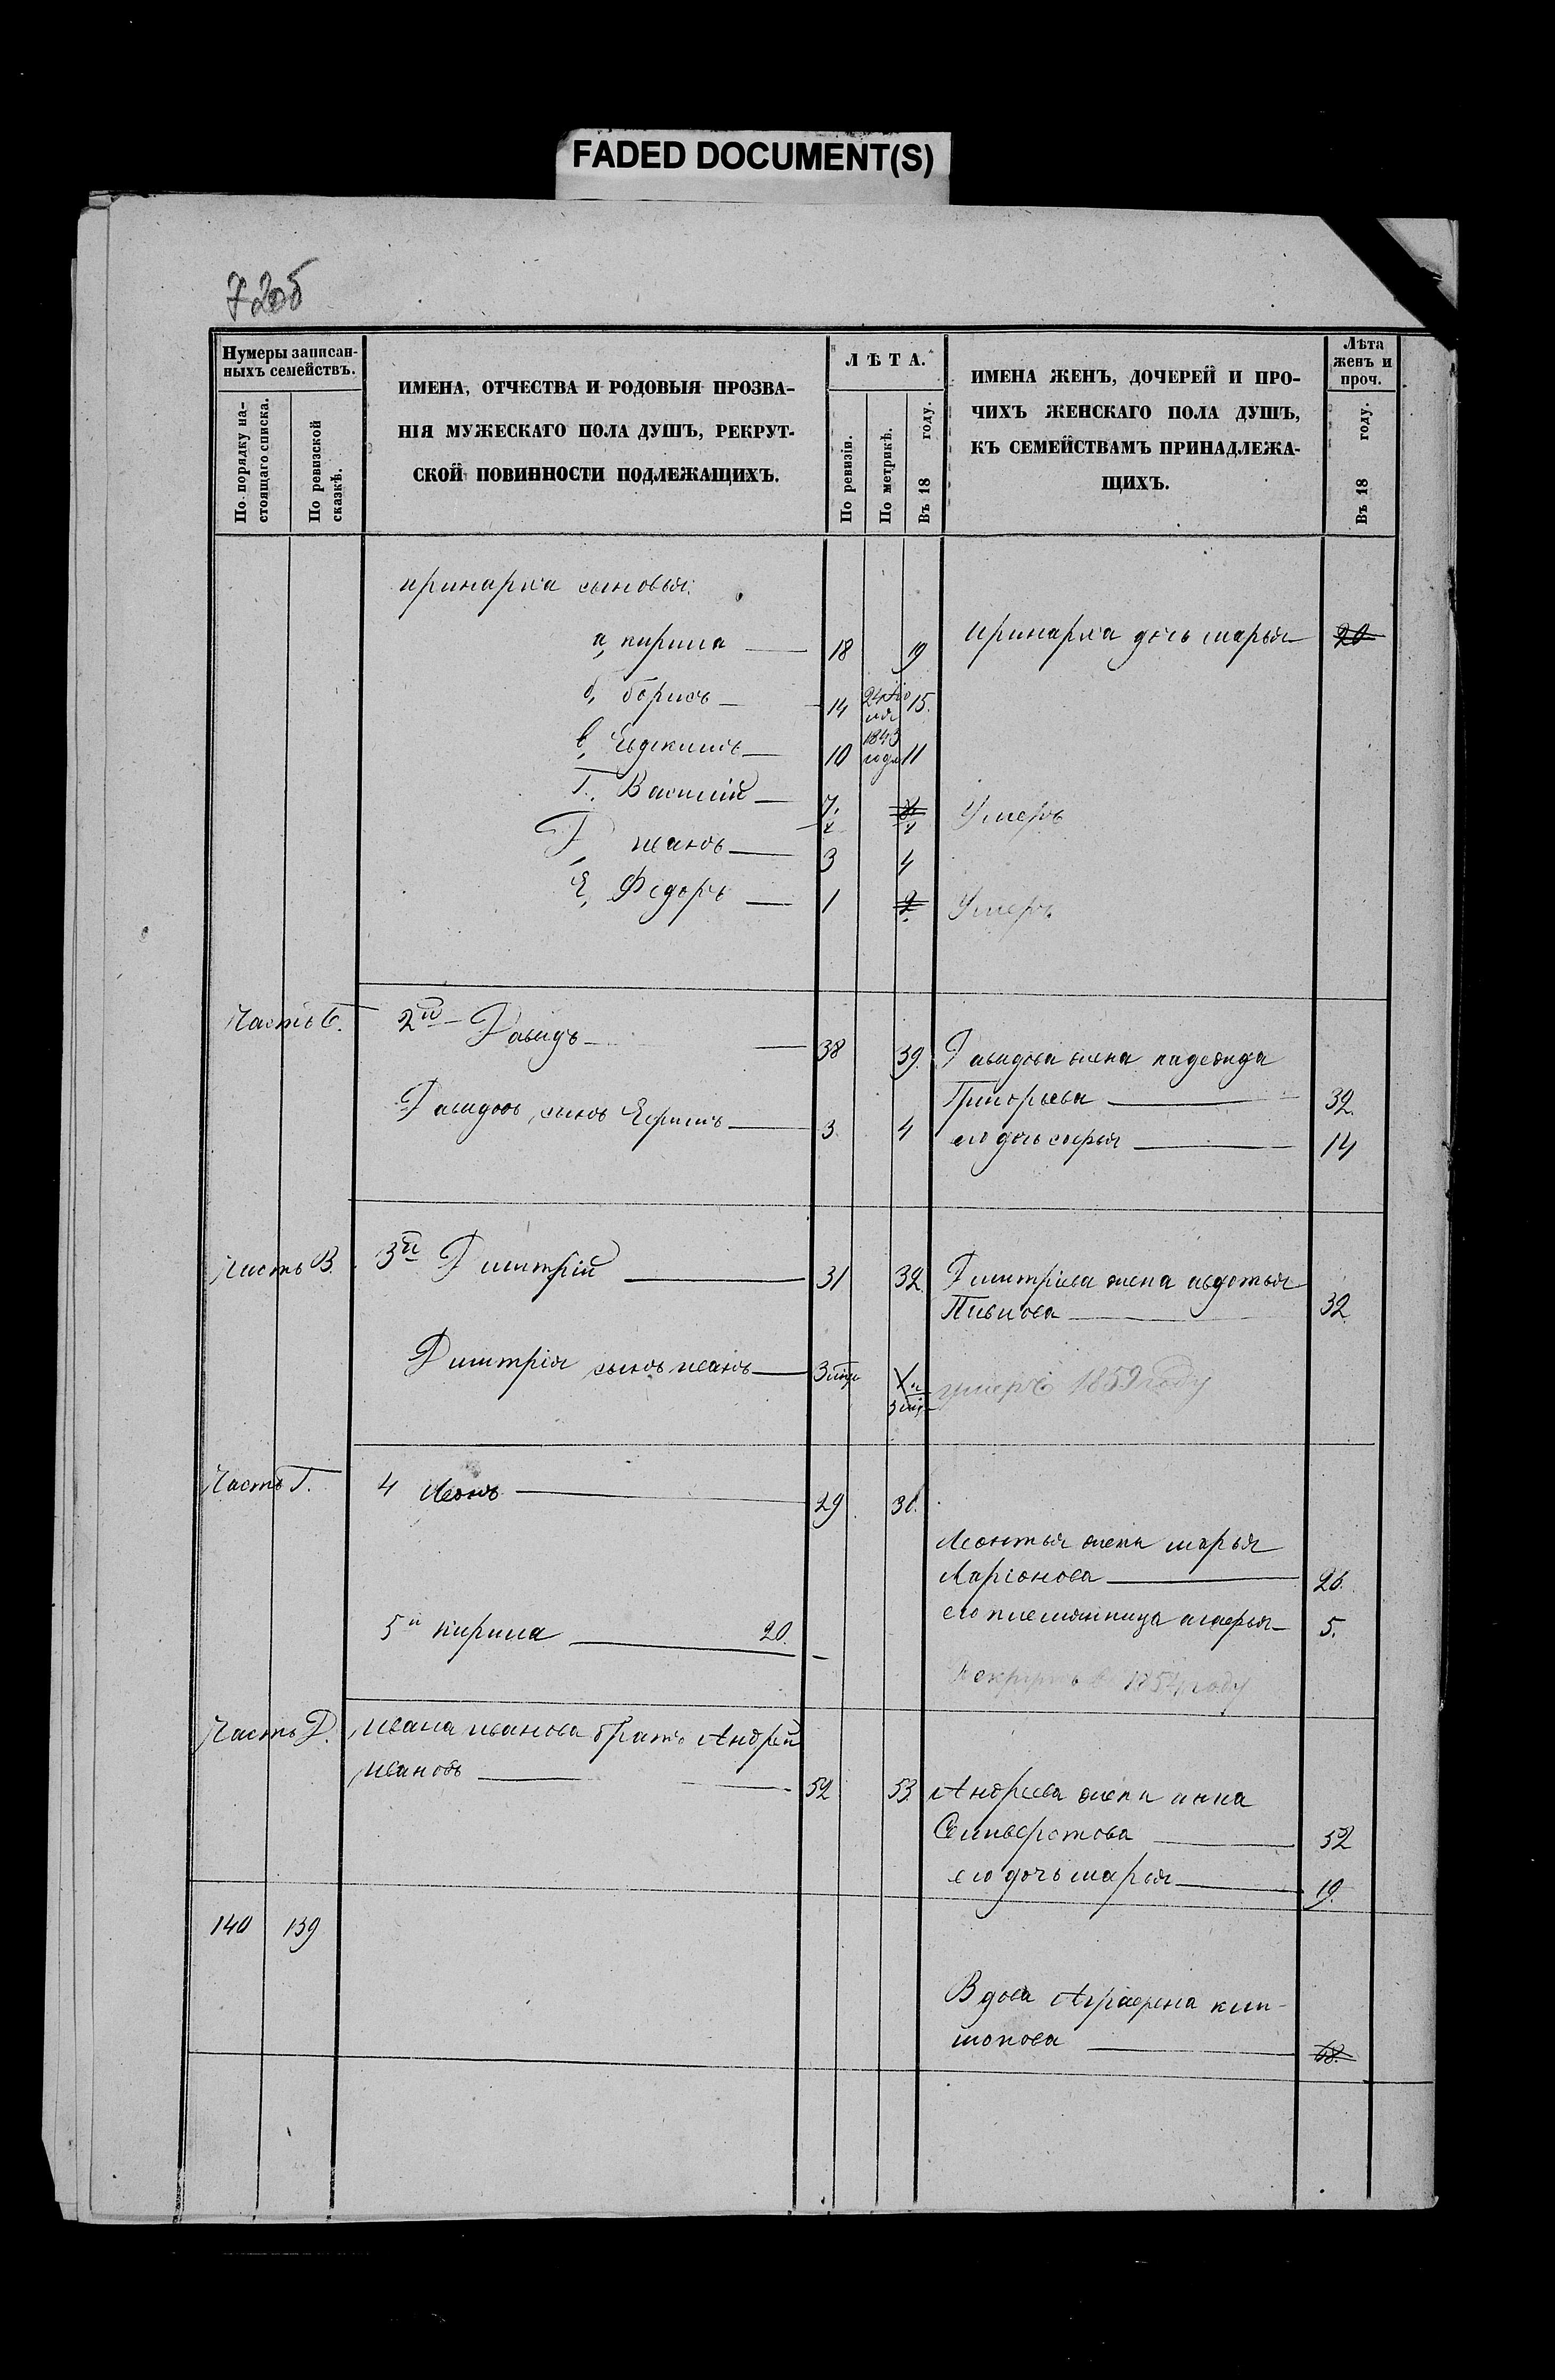 FADED DOCUMENT(S)
720б
Нумеры записан-
ныхъ семействъ.
По порядку на-
стоящаго списка.
По ревизской
сказкѣ.
ИМЕНА, ОТЧЕСТВА И РОДОВЫЯ ПРОЗВА-
НІЯ МУЖЕСКАГО ПОЛА ДУШЪ, РЕКРУТ-
СКОЙ ПОВИННОСТИ ПОДЛЕЖАЩИХЪ.
ЛѢТА.
По ревизіи.
По метрикѣ.
Въ 18 году.
ИМЕНА ЖЕНЪ, ДОЧЕРЕЙ И ПРО-
ЧИХЪ ЖЕНСКАГО ПОЛА ДУШЪ,
КЪ СЕМЕЙСТВАМЪ ПРИНАДЛЕЖА-
ЩИХЪ.
Лѣта
женъ и
проч.
Въ 18 году.
иринарха сыновья:
а, кирила 18 19
иринарха дочь марья 20
б, борисъ 14 24 Ію
ля 15.
в, Евдокимъ 10 1843
года 11
Г. Василій 7. 8 Умеръ
Д, иванъ 3 4
Е, Федоръ 1 2 Умеръ
Часть Б. 2й Давидъ 38 39. Давидова жена надежда
Григорьева 32.
Давидовъ сынъ Ефимъ 3. 4 его дочь софья 14
Часть В. 3й Дмитрій 31 32. Дмитріева жена авдотья
Павлова 32.
Дмитрія сынъ иванъ 3 умеръ 1859 году
Часть Г. 4 Леонъ 29 30.
Леонтья жена марья
Ларіонова 26.
его племянница марья 5.
5й кирила 20.
Рекрутъ в 1854 году
Часть Д. Ивана иванова братъ Андрей
Ивановъ 52 53. Андреева жена анна
Сильверстова 52
его дочь марья 19.
140 139
Вдова Аграфена
68.